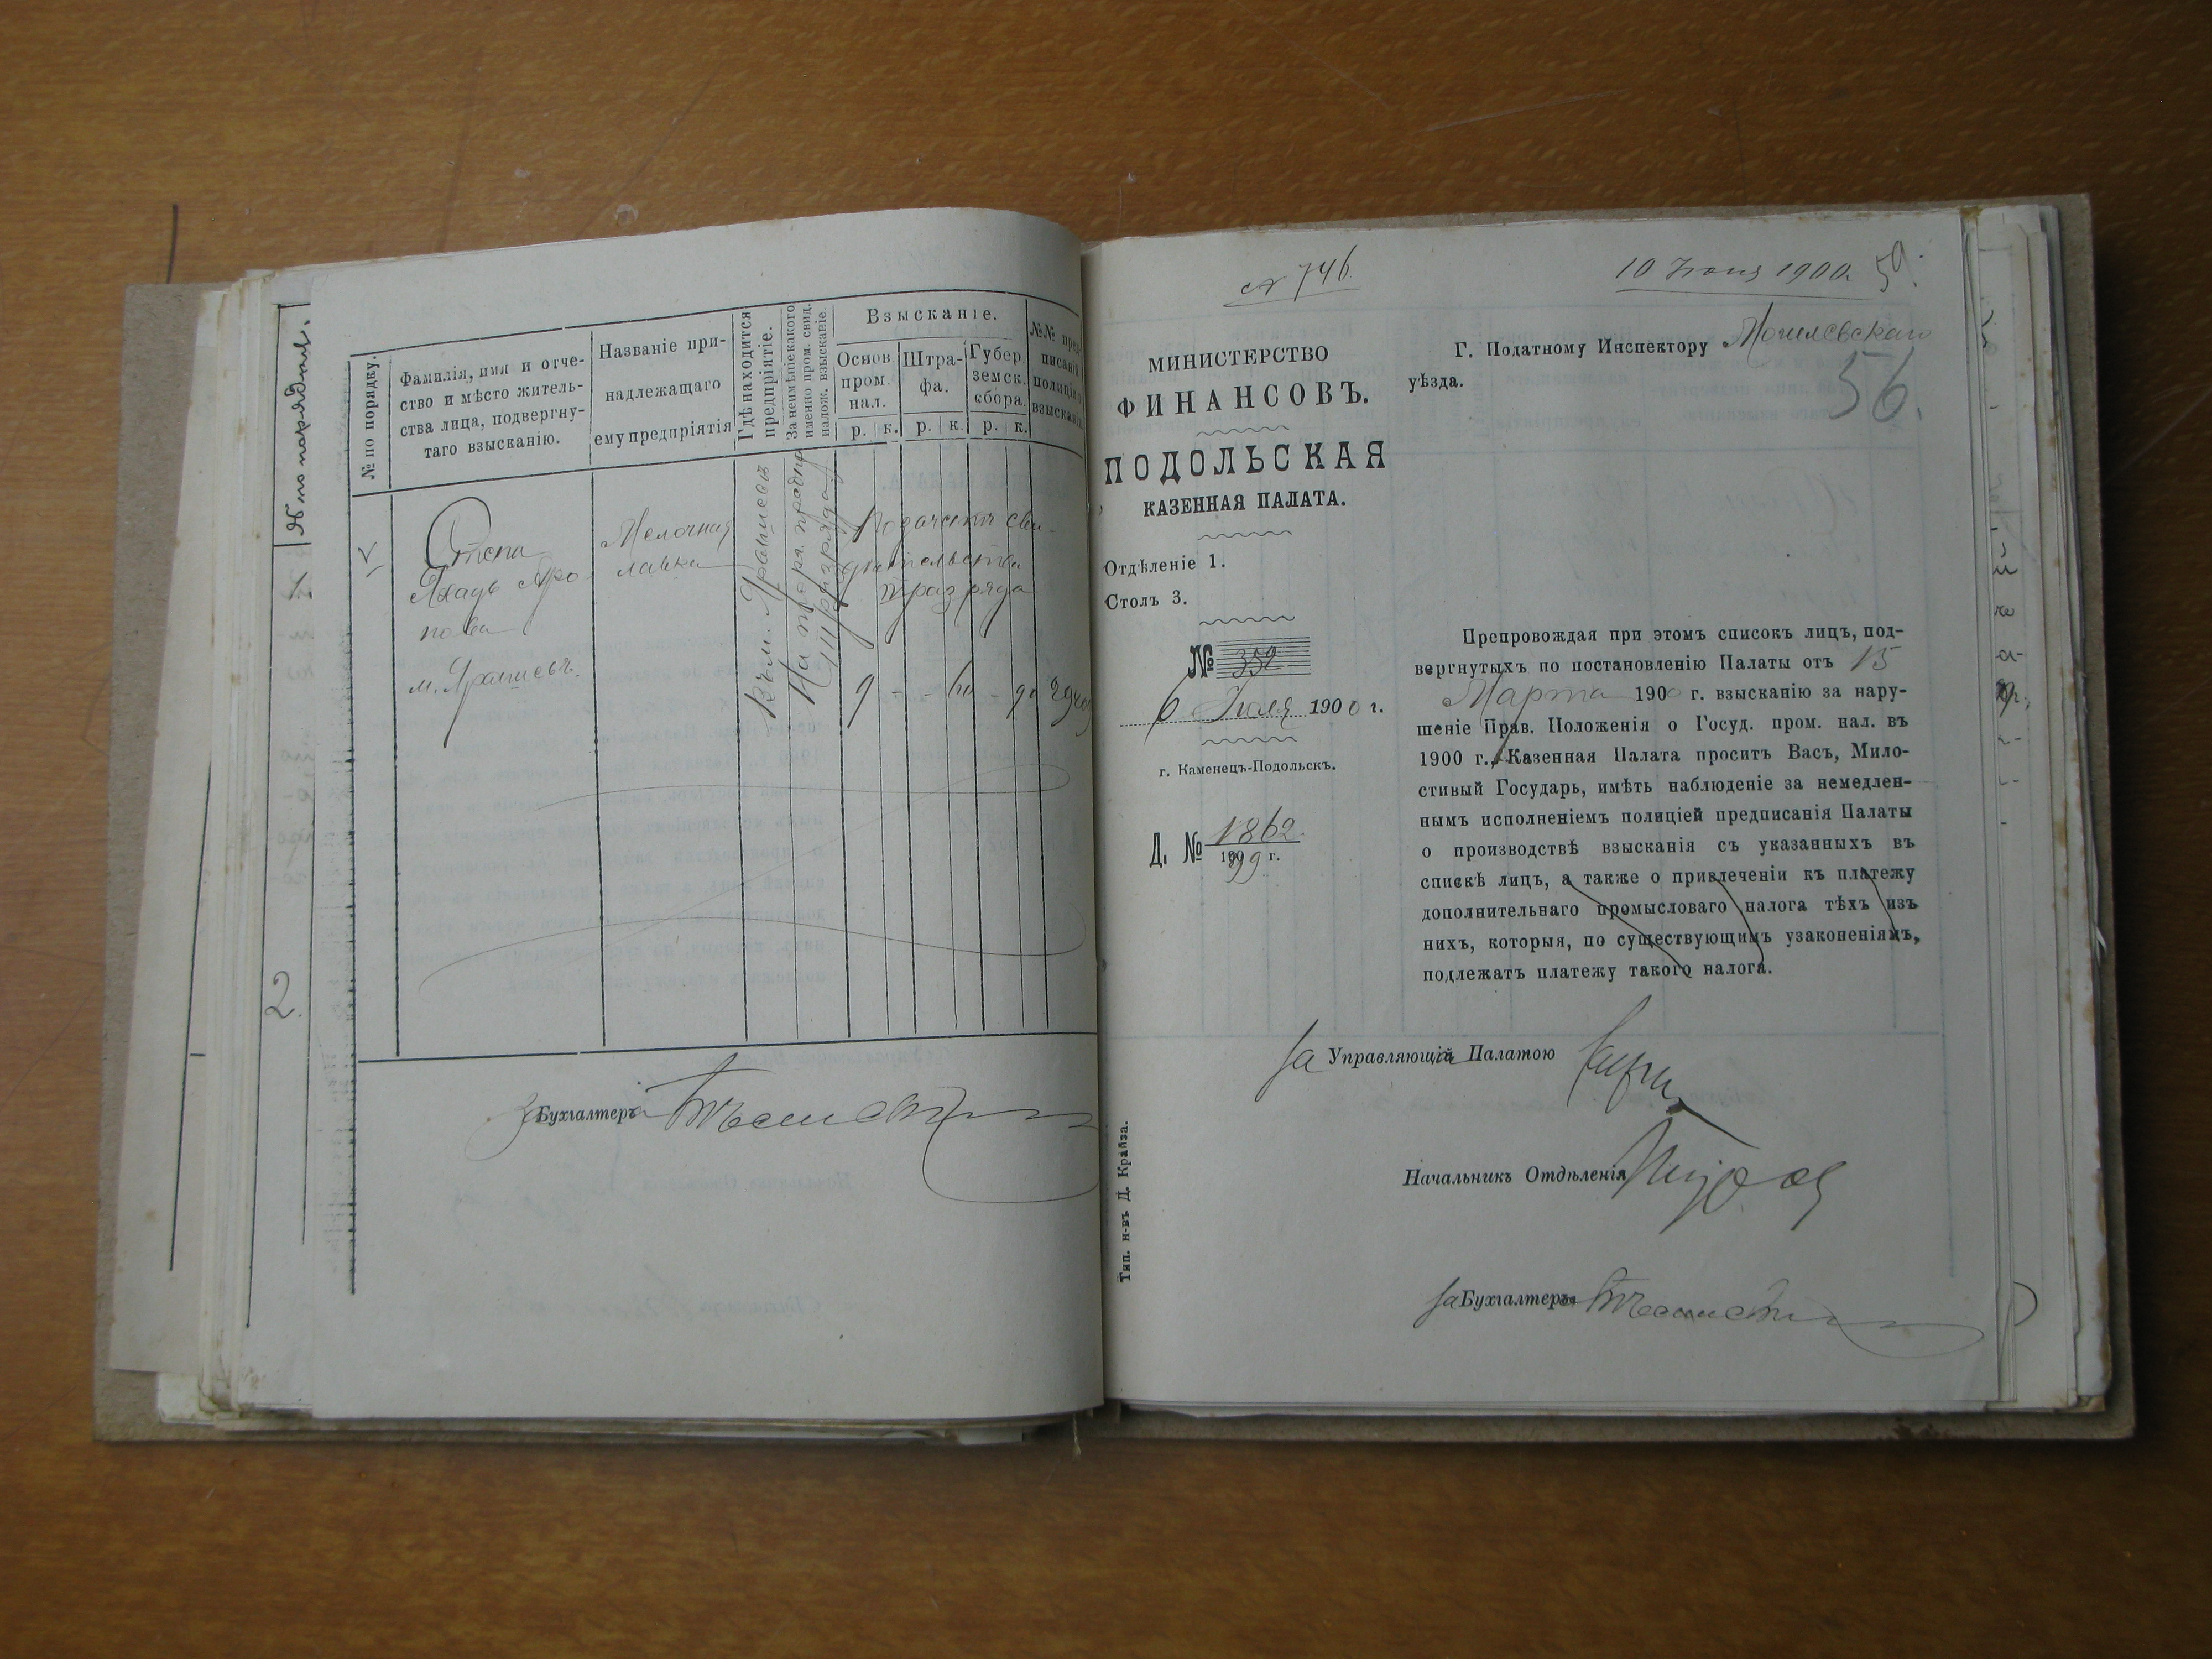 № по порядку.
№ по порядку.
Фамилія, имя и отче-
ство и мѣсто житель-
ства лица, подвергну-
таго взысканію.
Названіе при-
надлежащаго
ему предпріятія
Гдѣ находится
предпріятіе.
За неимѣніе какого
именно пром. свид.
налож. взысканіе.
Взысканіе.
Основ.
пром.
нал.
Штра-
фа.
Губер.
земск.
сбора.
р. к. р. к. р. к.
№№ пред-
писанія
полиціи о
взысканіи
Мелочная
лавка
2.
Бухгалтеръ
№ 746.
10 Іюня 1900 г.
59.
56.
МИНИСТЕРСТВО
ФИНАНСОВЪ.
ПОДОЛЬСКАЯ
КАЗЕННАЯ ПАЛАТА.
Отдѣленіе 1.
Столъ 3.
№ 352
6 Іюля 1900 г.
г. Каменецъ-Подольскъ.
Д. № 1862.
190 г.
99
Г. Податному Инспектору Могилевскаго
уѣзда.
Препровождая при этомъ списокъ лицъ, под-
вергнутыхъ по постановленію Палаты отъ 15
Марта 1900 г. взысканію за нару-
шеніе Прав. Положенія о Госуд. пром. нал. въ
1900 г., Казенная Палата проситъ Васъ, Мило-
стивый Государь, имѣть наблюденіе за немедлен-
нымъ исполненіемъ полиціей предписанія Палаты
о производствѣ взысканія съ указанныхъ въ
спискѣ лицъ, а также о привлеченіи къ платежу
дополнительнаго промысловаго налога тѣхъ изъ
нихъ, которыя, по существующимъ узаконеніямъ,
подлежатъ платежу такого налога.
За Управляющій Палатою
Начальникъ Отдѣленія
За Бухгалтера
Тип. н-въ Д. Крайза.